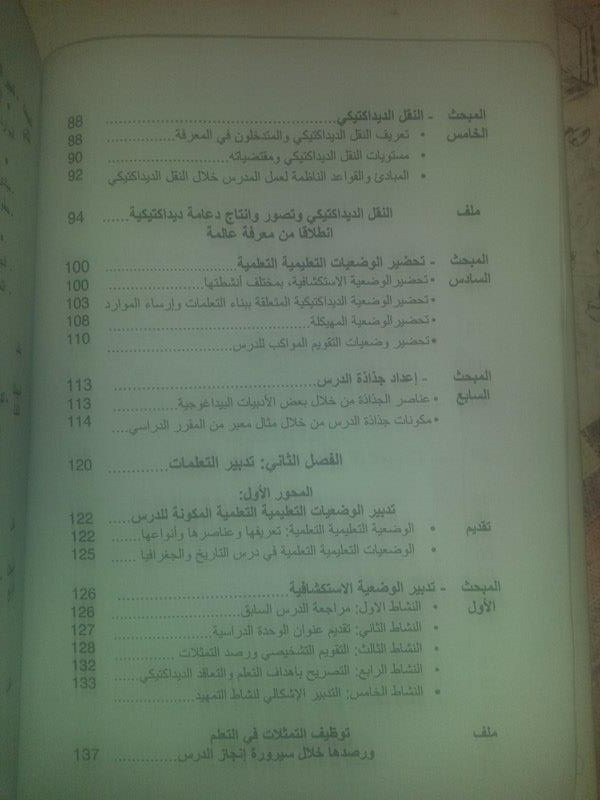 المبحث الخامس - النقل الديداكتيكي........................ 88
• تعريف النقل الديداكتيكي والمتدخلون في المعرفة............. 88
• مستويات النقل الديداكتيكي ومقتضياته....................... 90
• المبادئ والقواعد الناظمة لعمل المدرس خلال النقل الديداكتيكي 92
ملف النقل الديداكتيكي وتصور وانتاج دعامة ديداكتيكية...... 94
انطلاقا من معرفة عالمة
المبحث السادس - تحضير الوضعيات التعليمية التعلمية................ 100
• تحضير الوضعية الاستكشافية، بمختلف أنشطتها.............. 100
• تحضير الوضعية الديداكتيكية المتعلقة ببناء التعلمات وإرساء الموارد 103
• تحضير الوضعية المهيكلة................................ 108
• تحضير وضعيات التقويم المواكب للدرس.................... 110
المبحث السابع - إعداد جذاذة الدرس............................ 113
• عناصر الجذاذة من خلال بعض الأدبيات البيداغوجية......... 113
• مكونات جذاذة الدرس من خلال مثال معبر من المقرر الدراسي.... 114
الفصل الثاني: تدبير التعلمات............ 120
المحور الأول:
تدبير الوضعيات التعليمية التعلمية المكونة للدرس..... 122
تقديم • الوضعية التعليمية التعلمية: تعريفها وعناصرها وأنواعها...... 122
• الوضعيات التعليمية التعلمية في درس التاريخ والجغرافيا ...... 125
المبحث الأول - تدبير الوضعية الاستكشافية........................ 126
• النشاط الاول: مراجعة الدرس السابق...................... 126
• النشاط الثاني: تقديم عنوان الوحدة الدراسية................ 127
• النشاط الثالث: التقويم التشخيصي ورصد التمثلات......... 128
• النشاط الرابع: التصريح بأهداف التعلم والتعاقد الديداكتيكي..... 132
• النشاط الخامس: التدبير الإشكالي لنشاط التمهيد........... 133
ملف توظيف التمثلات في التعلم
ورصدها خلال سيرورة إنجاز الدرس............. 137